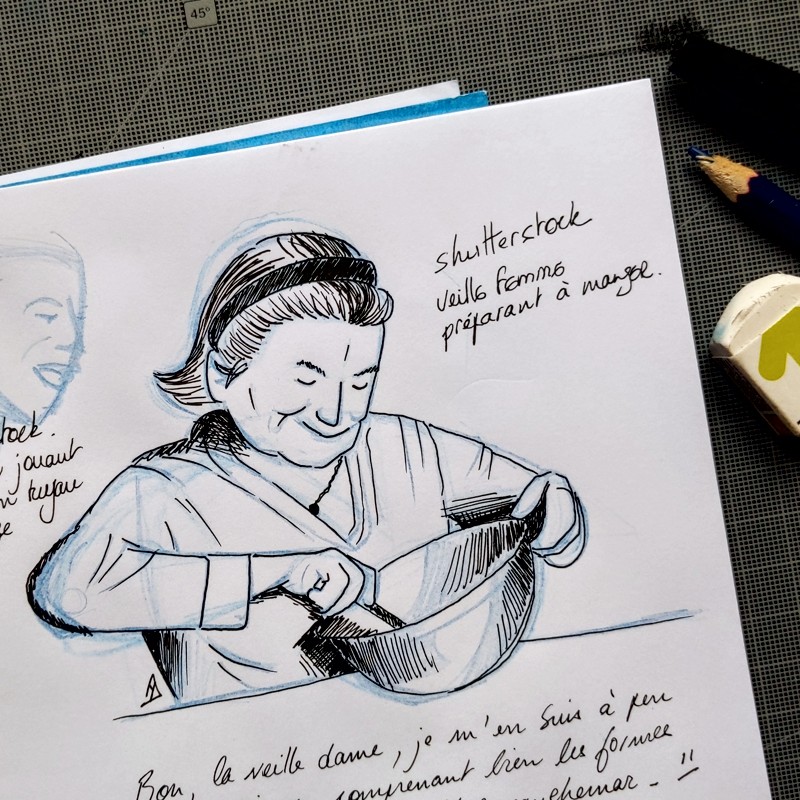 45°
shutterstock
veille femme
préparant à manger.
tock.
jouant
n tuyau
Bon, la veille dame, je m'en suis à peu
comprenant bien les formes